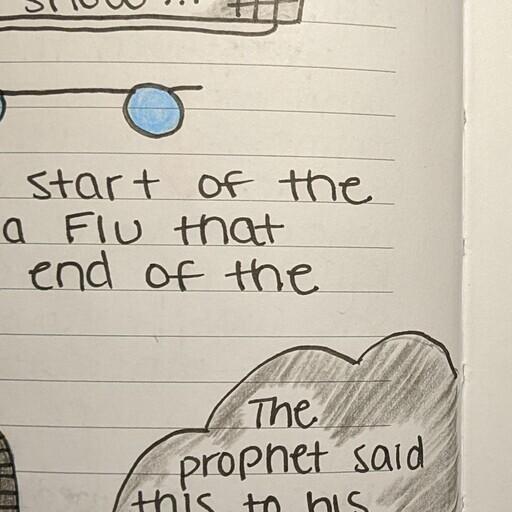 start of the
a Flu that
end of the
The
prophet said
this to his